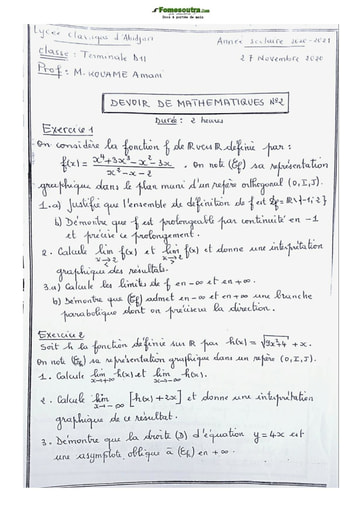 Fomesoutra.com
Docs à portée de main
Lycée classique d'Abidjan
Année Scolaire 2020-2021
Classe: Terminale D11
27 Novembre 2020
Prof: M. KOUAME Amani
DEVOIR DE MATHEMATIQUES N°2
Durée : 2 heures
Exercice 1
On considère la fonction f de ℝ vers ℝ définie par :
f(x) = (x⁴+3x³-x²-3x)/(x²-x-2) . On note (Cf) sa représentation
graphique dans le plan muni d'un repère orthogonal (O, I, J).
1.a) Justifie que l'ensemble de définition de f est Df = ℝ\{-1; 2}
b) Démontre que f est prolongeable par continuité en -1
et précise ce prolongement.
2. Calcule lim x→2 f(x) et lim x→2 f(x) et donne une interprétation
graphique des résultats.
3.a) Calcule les limites de f en -∞ et en +∞.
b) Démontre que (Cf) admet en -∞ et en +∞ une branche
parabolique dont on précisera la direction.
Exercice 2
Soit h la fonction définie sur ℝ par h(x) = √9x²+4 + x.
On note (Ch) sa représentation graphique dans un repère (O, I, J).
1. Calcule lim x→+∞ h(x) et lim x→-∞ h(x).
2. Calcule lim x→-∞ [h(x) + 2x] et donne une interprétation
graphique de ce résultat.
3. Démontre que la droite (D) d'équation y = 4x est
une asymptote oblique à (Ch) en +∞.